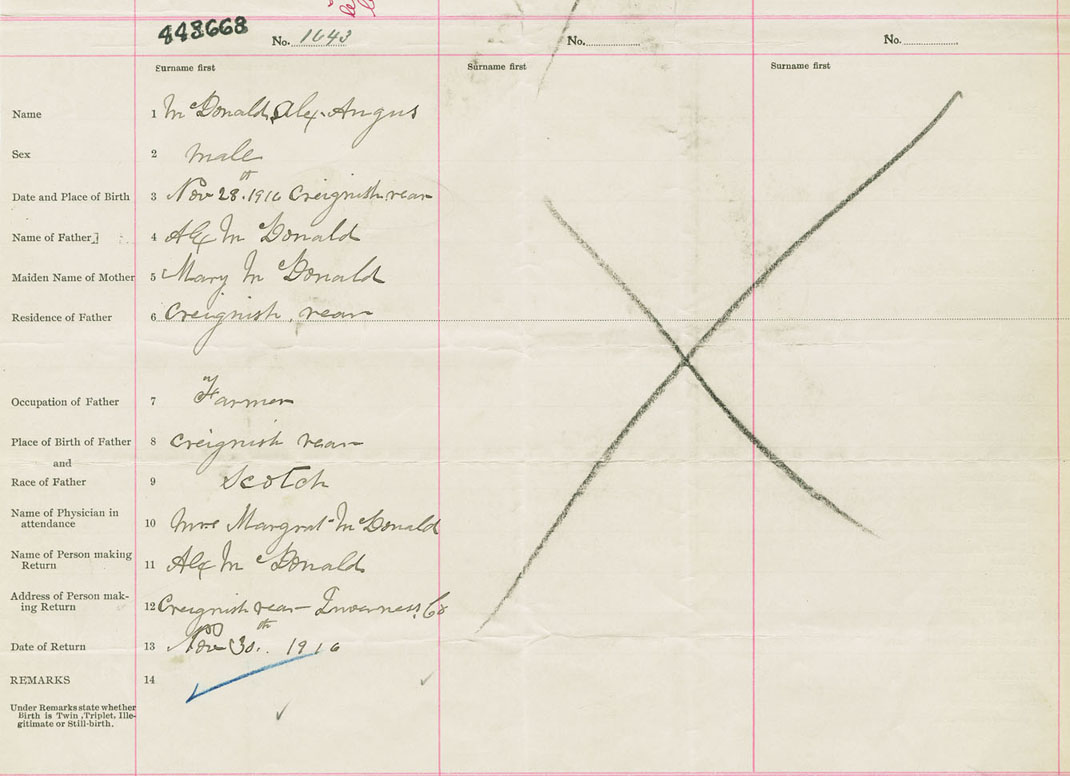 448668
No. 1643 No. No.
Surname first Surname first Surname first
Name 1 McDonald, Alex. Angus
Sex 2 male
Date and Place of Birth 3 Nov 28th. 1916 Creignish rear
Name of Father 4 Alex McDonald
Maiden Name of Mother 5 Mary McDonald
Residence of Father 6 Creignish, rear
Occupation of Father 7 Farmer
Place of Birth of Father 8 Creignish rear
and
Race of Father 9 Scotch
Name of Physician in
attendance 10 Mrs Margrat McDonald
Name of Person making
Return 11 Alex McDonald
Address of Person mak-
ing Return 12 Creignish rear Inverness, Co
Date of Return 13 Nov 30th. 1916
REMARKS 14
Under Remarks state whether
Birth is Twin, Triplet, Ille-
gitimate or Still-birth.